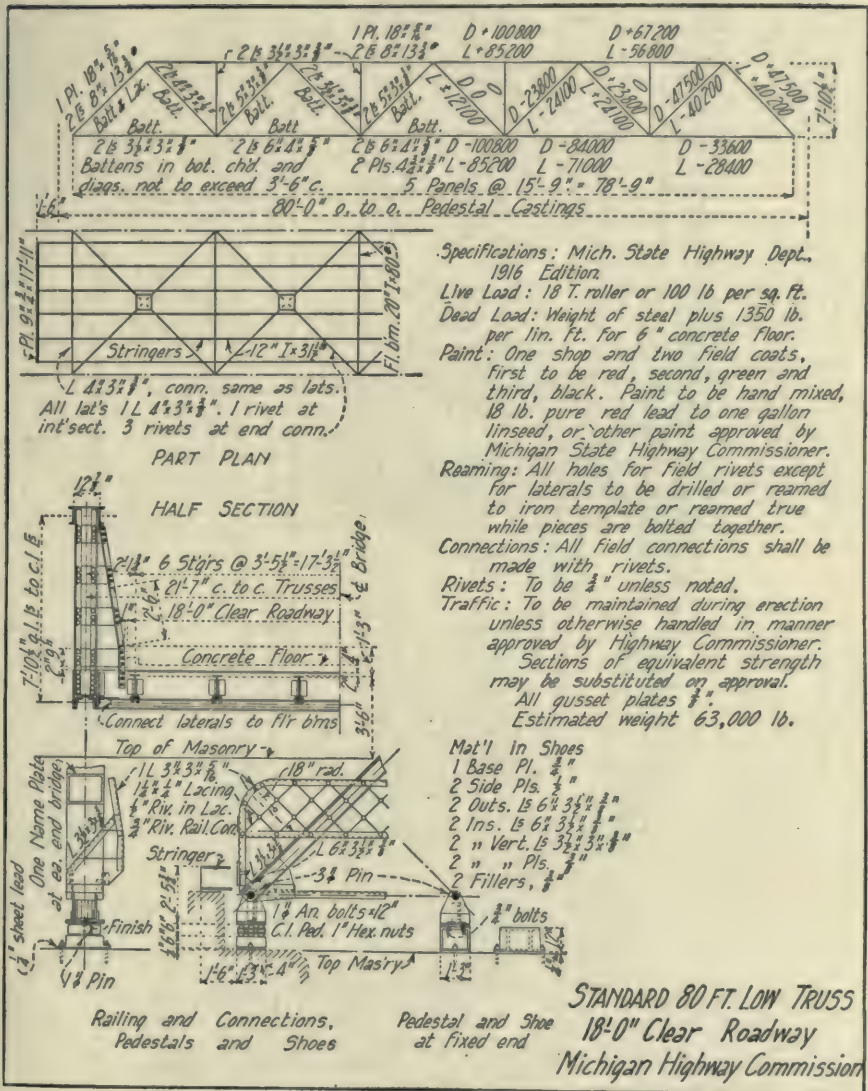 1 Pl. 18"x 5/16"
2 [s 8"x 13 3/4#
D +100800
D +67200
L +85200
L -56800
2 Ls 3½"x 3"x 3/8"
1 Pl. 18"x 5/16"
2 [s 8"x 13 3/4#
Batt & Lac.
2 Ls 4"x 3"x 3/8"
Batt.
2 Ls 5"x 3"x 3/8"
Batt.
Batt.
2 Ls 5"x 3"x 3/8"
Batt.
D 0
L +12100
D -23800
L -24100
D +23800
L +24100
D -47500
L -40200
D +47500
L +40200
7'-10½"
Batt.
Batt
Batt.
2 Ls 3½"x 3"x 3/8"
2 Ls 6"x 4"x 5/8"
2 Ls 6"x 4"x 5/8"
D -100800
D -84000
D -33600
2 Pls. 4½"x ½"
L -85200
L -71000
L -28400
Battens in bot. ch'd. and
diags. not to exceed 3'-6" c.
5 Panels @ 15'-9" = 78'-9"
1'-6"
80'-0" o. to o. Pedestal Castings
Pl. 9"x 17'-11"
Stringers
12" I x 31½#
Fl. b'm. 20" I x 80#
L 4"x 3"x 3/8", conn. same as lats.
All lat's 1 L 4"x 3"x 3/8". 1 rivet at
int'sect. 3 rivets at end conn.
PART PLAN
Specifications: Mich. State Highway Dept.,
1916 Edition
Live Load: 18 T. roller or 100 lb per sq. ft.
Dead Load: Weight of steel plus 1350 lb.
per lin. ft. for 6" concrete floor.
Paint: One shop and two field coats,
first to be red, second, green and
third, black. Paint to be hand mixed,
18 lb. pure red lead to one gallon
linseed, or other paint approved by
Michigan State Highway Commissioner.
Reaming: All holes for field rivets except
for laterals to be drilled or reamed
to iron template or reamed true
while pieces are bolted together.
Connections: All field connections shall be
made with rivets.
Rivets: To be ¾" unless noted.
Traffic: To be maintained during erection
unless otherwise handled in manner
approved by Highway Commissioner.
Sections of equivalent strength
may be substituted on approval.
All gusset plates 3/8".
Estimated weight 63,000 lb.
HALF SECTION
6 St'g'rs @ 3'-5½"=17'-3½"
21'-7" c. to c. Trusses
18'-0" Clear Roadway
2'-6"
1"
Concrete Floor
℄ Bridge
1'-3"
3'-6"
Connect laterals to fl'r b'ms
Top of Masonry
One Name Plate
at ea. end bridge
1 L 3"x 3"x 5/16"
Lacing
Riv. in Lac.
Riv. Rail. Con.
18" rad.
Stringer
L 6"x 3½"x 3/8"
Pin
An. bolts x 12"
C.I. Ped. 1" Hex. nuts
sheet lead
Finish
Pin
1'-6"
1'-3"
4"
Top Mas'ry
1'-3"
¾" bolts
Mat'l in Shoes
1 Base Pl.
2 Side Pls.
2 Outs. Ls 6"x 3½"
2 Ins. Ls 6"x 3½"
2 " Vert. Ls 3½"x 3"
2 " " Pls.
2 Fillers,
Railing and Connections,
Pedestals and Shoes
Pedestal and Shoe
at fixed end
STANDARD 80 FT. LOW TRUSS
18'-0" Clear Roadway
Michigan Highway Commission